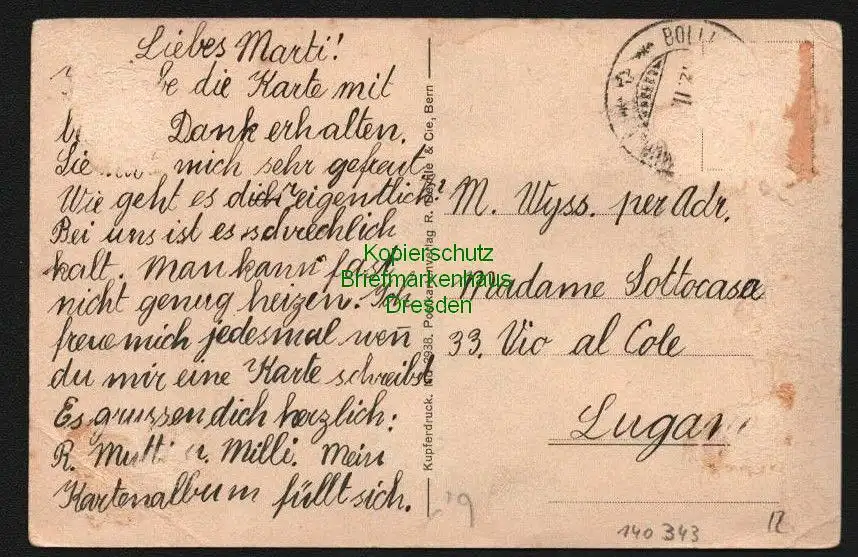 Liebes Marti!
die Karte mit
Dank erhalten.
Sie mich sehr gefreut
Wie geht es dich eigentlich?
Bei uns ist es schrecklich
kalt. Man kann fast
nicht genug heizen. Ich
freue mich jedesmal wen̄
du mir eine Karte schreibst
Es grussen dich herzlich:
R. Mutti u. Milli. Mein
Kartenalbum füllt sich.
Kupferdruck. No 2938. Postkartenverlag R. & Cie, Bern
BOLLI
M. Wyss. per Adr.
Madame Sottocasa
33. Vio al Cole
Lugan
140 343
12
Kopierschutz
Briefmarkenhaus
Dresden